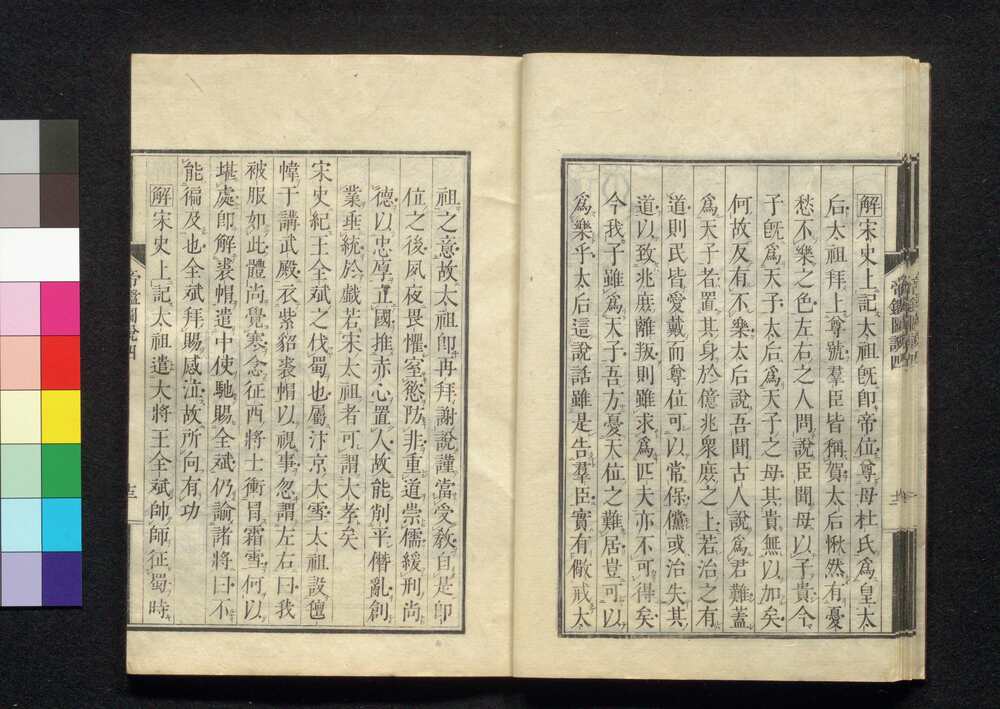 解宋史上記太祖既卽帝位尊母杜氏爲皇太
后太祖拜上尊號羣臣皆稱賀太后愀然有憂
愁不樂之色左右之人問說臣聞母以子貴今
子既爲天子太后爲天子之母其貴無以加矣
何故反有不樂太后說吾聞古人說爲君難蓋
爲天子者置其身於億兆衆庶之上若治之有
道則民皆愛戴而尊位可以常保儻或治失其
道以致兆庶離叛則雖求爲匹夫亦不可得矣
今我子雖爲天子吾方憂天位之難居豈可以
爲樂乎太后這說話雖是告羣臣實有儆戒太
祖之意故太祖卽再拜謝說謹當受敎自是卽
位之後夙夜畏懼室慾防非重道崇儒緩刑尚
德以忠厚立國推赤心置人故能削平僭亂創
業垂統於戲若宋太祖者可謂大孝矣
宋史紀王全斌之伐蜀也屬汴京大雪太祖設氊
幃于講武殿衣紫貂裘帽以視事忽謂左右曰我
被服如此體尚覺寒念征西將士衝冒霜雪何以
堪處卽解裘帽遣中使馳賜全斌仍諭諸將曰不
能徧及也全斌拜賜感泣故所向有功
解宋史上記太祖遣大將王全斌帥師征蜀時
帝鑑圖說四